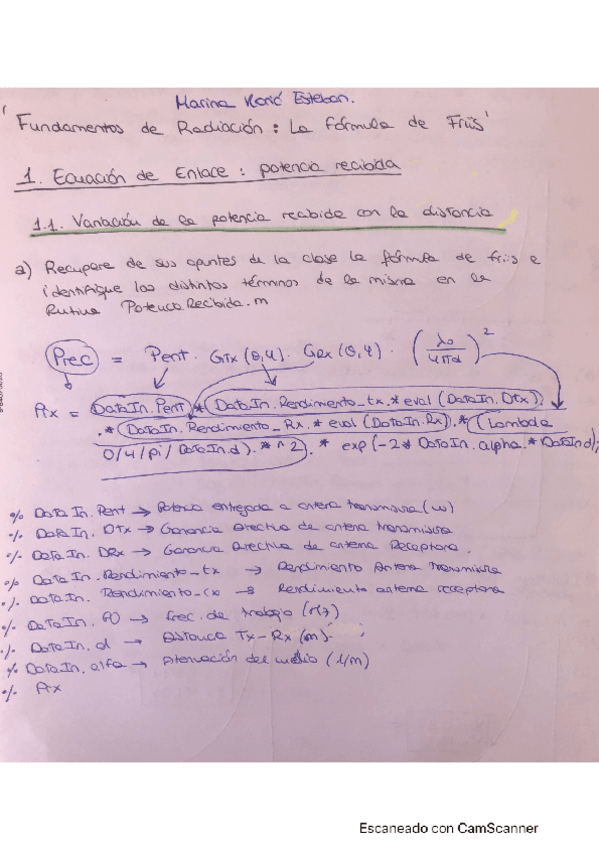 Marina Esteban.
'Fundamentos de Radiación: La fórmula de Friis'
1. Ecuación de Enlace: potencia recibida
1.1. Variación de la potencia recibida con la distancia
a) Recupere de sus apuntes de la clase la fórmula de friis e
identifique los distintos términos de la misma en la
Rutina PotenciaRecibida.m
Prec = Pent. GTx(θ,φ). GRx(θ,φ). (λo/4πd)^2
Ax = DataIn.Pent * (DataIn.Rendimiento_tx.* eval(DataIn.Dtx)).
.* (DataIn.Rendimiento_Rx.* eval(DataIn.Rx)).* ((Lambda
0/4/pi/DataIn.d).^2).* exp(-2* DataIn.alpha.* DataInd);
% DataIn.Pent → Potencia entregada a antena transmisora (w)
% DataIn.DTx → Ganancia directiva de antena transmisora
% DataIn.DRx → Ganancia Directiva de antena Receptora.
% DataIn.Rendimiento_tx → Rendimiento Antena transmisora
% DataIn.Rendimiento_rx → Rendimiento antena receptora
% DataIn. → frec. de trabajo (Hz)
% DataIn.d → distancia Tx-Rx (m).
% DataIn.alfa → Atenuación del medio (1/m)
% Ax
Escaneado con CamScanner